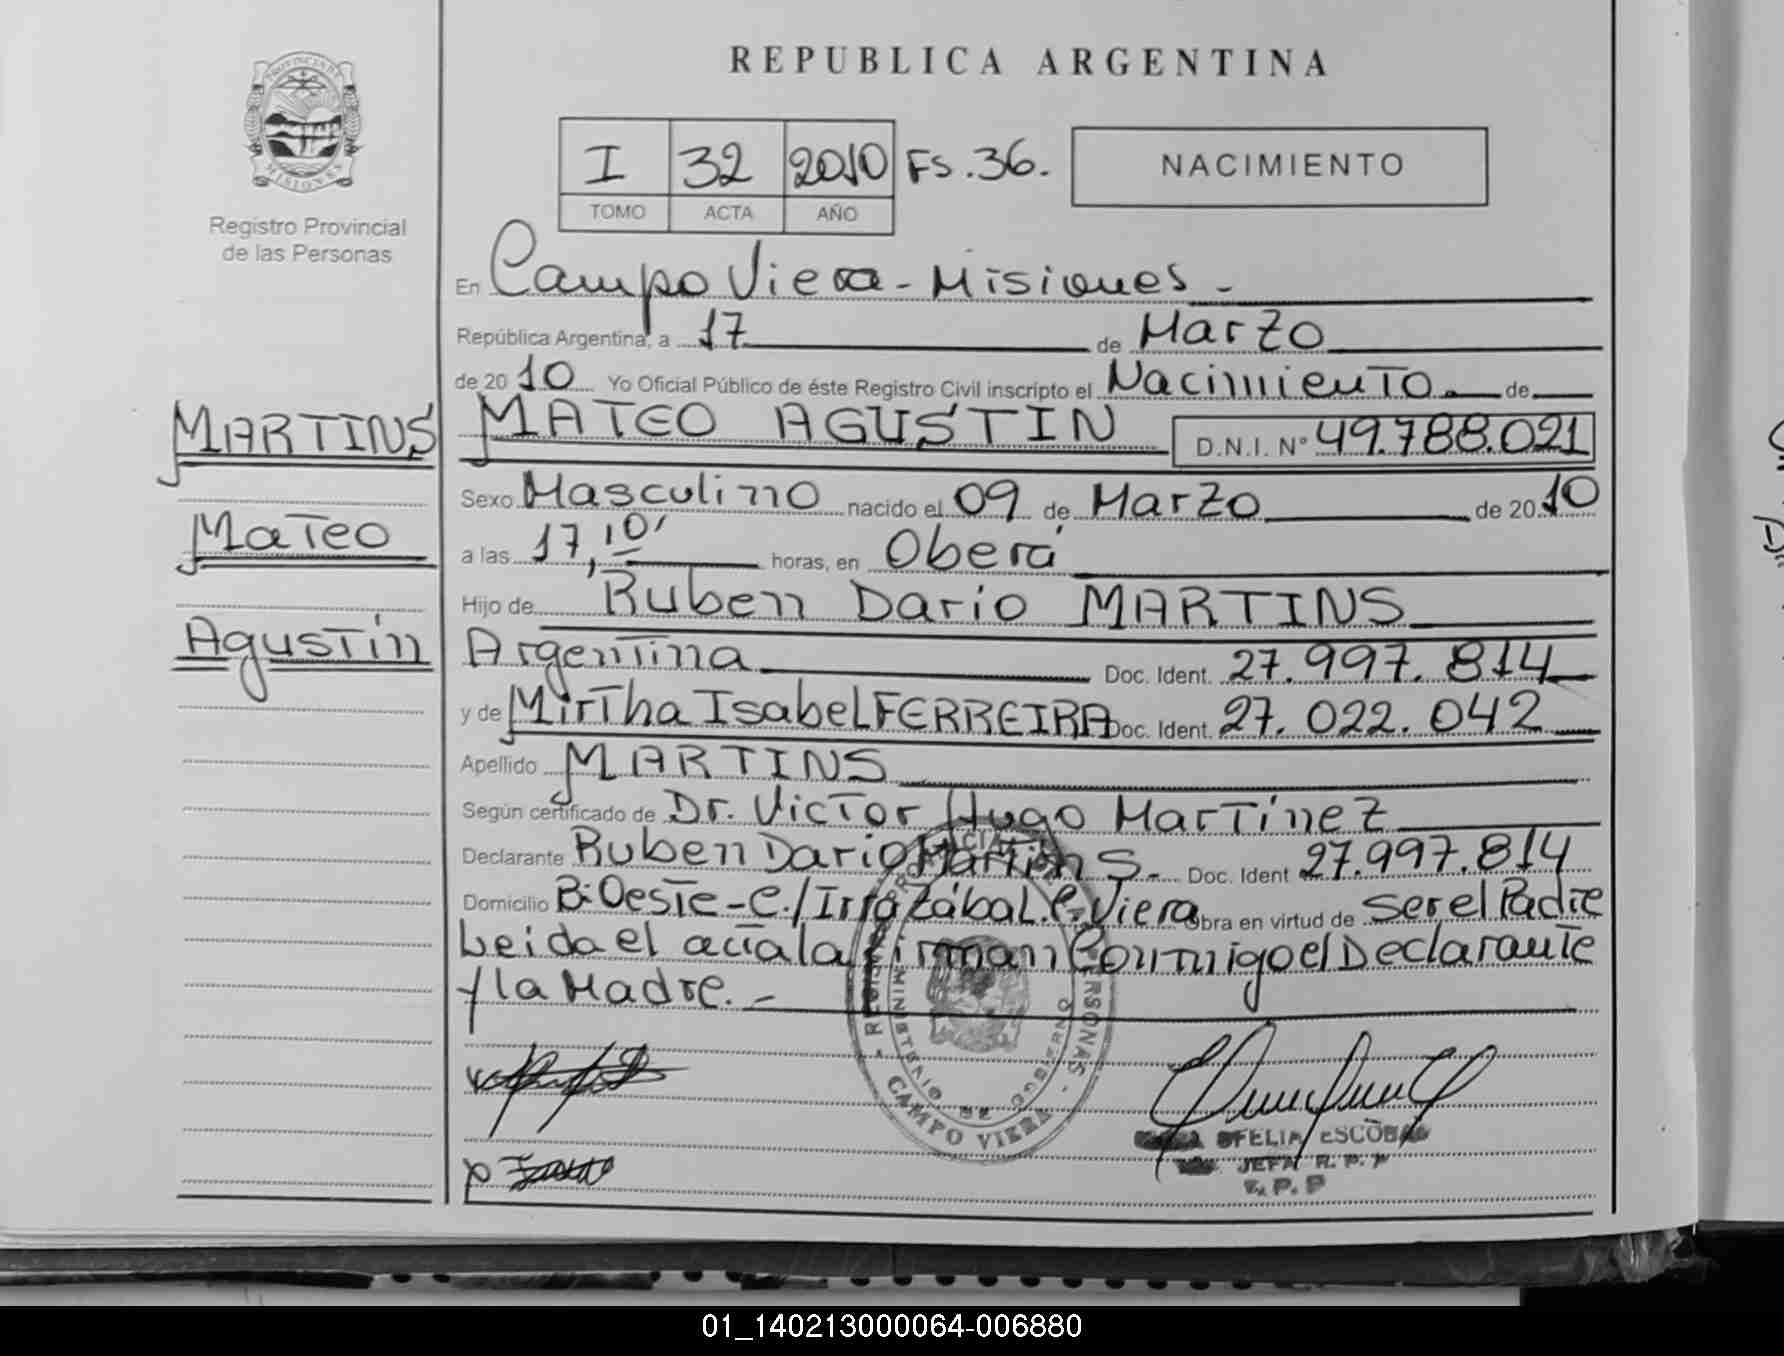 REPUBLICA ARGENTINA
PROVINCIA DE MISIONES
Registro Provincial
de las Personas
I 32 2010 FS.36.
TOMO ACTA AÑO
NACIMIENTO
En Campo Viera - Misiones -
República Argentina, a 17 de Marzo
de 2010 Yo Oficial Público de éste Registro Civil inscripto el Nacimiento. de
MARTINS
Mateo
Agustín
MATEO AGUSTIN D.N.I. Nº 49.788.021
Sexo Masculino nacido el 09 de Marzo de 2010
a las 17,10' horas, en Oberá
Hijo de Ruben Dario MARTINS
Argentina Doc. Ident. 27.997.814
y de Mirtha Isabel FERREIRA Doc. Ident. 27.022.042
Apellido MARTINS
Según certificado de Dr. Victor Hugo Martínez
Declarante Ruben Dario Martins. - Doc. Ident 27.997.814
Domicilio B: Oeste - C./Irrazábal. C. Viera Obra en virtud de ser el Padre
Leida el acta la firman Conmigo el Declarante
y la Madre. -
REGISTRO PROVINCIAL DE LAS PERSONAS - CAMPO VIERA -
MINISTERIO DE GOBIERNO
OFELIA ESCOBAR
JEFA R. P. P
R. P. P
01_140213000064-006880